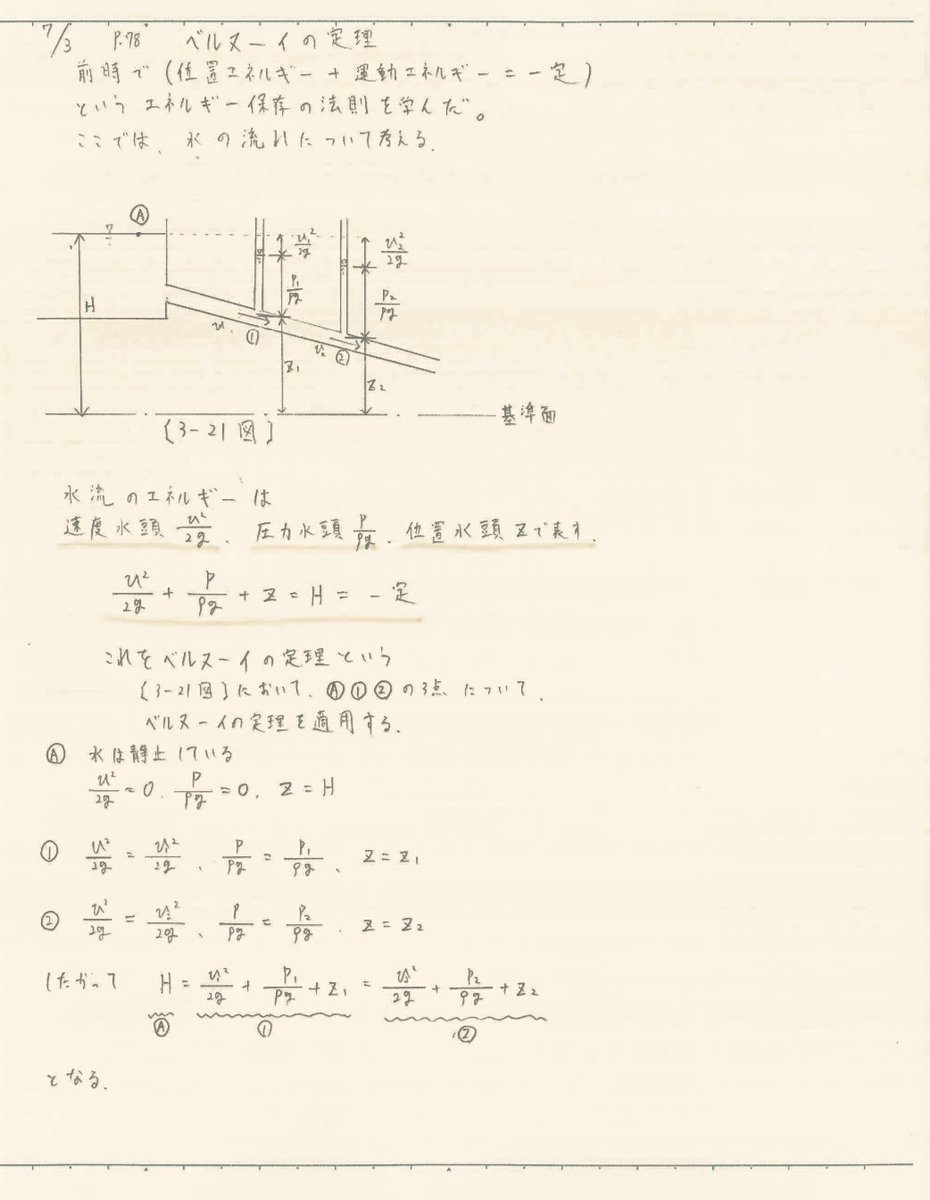 7/3 P.78 ベルヌーイの定理
前時で (位置エネルギー + 運動エネルギー = 一定)
という エネルギー保存の法則を学んだ。
ここでは、水の流れについて考える.
Ⓐ
H
v₁²/2g
P₁/ρg
z₁
①
v₂²/2g
P₂/ρg
z₂
v₂
②
基準面
〔3-21 図〕
水流のエネルギーは
速度水頭 v²/2g 、圧力水頭 P/ρg 、位置水頭 zで表す.
v²/2g + P/ρg + z = H = 一定
これをベルヌーイの定理という
〔3-21図〕において、Ⓐ①②の3点について、
ベルヌーイの定理を適用する.
Ⓐ 水は静止している
v²/2g = 0 、P/ρg = 0 、z = H
① v²/2g = v₁²/2g 、P/ρg = P₁/ρg 、z = z₁
② v²/2g = v₂²/2g 、P/ρg = P₂/ρg 、z = z₂
したがって H = v₁²/2g + P₁/ρg + z₁ = v₂²/2g + P₂/ρg + z₂
Ⓐ ① ②
となる.